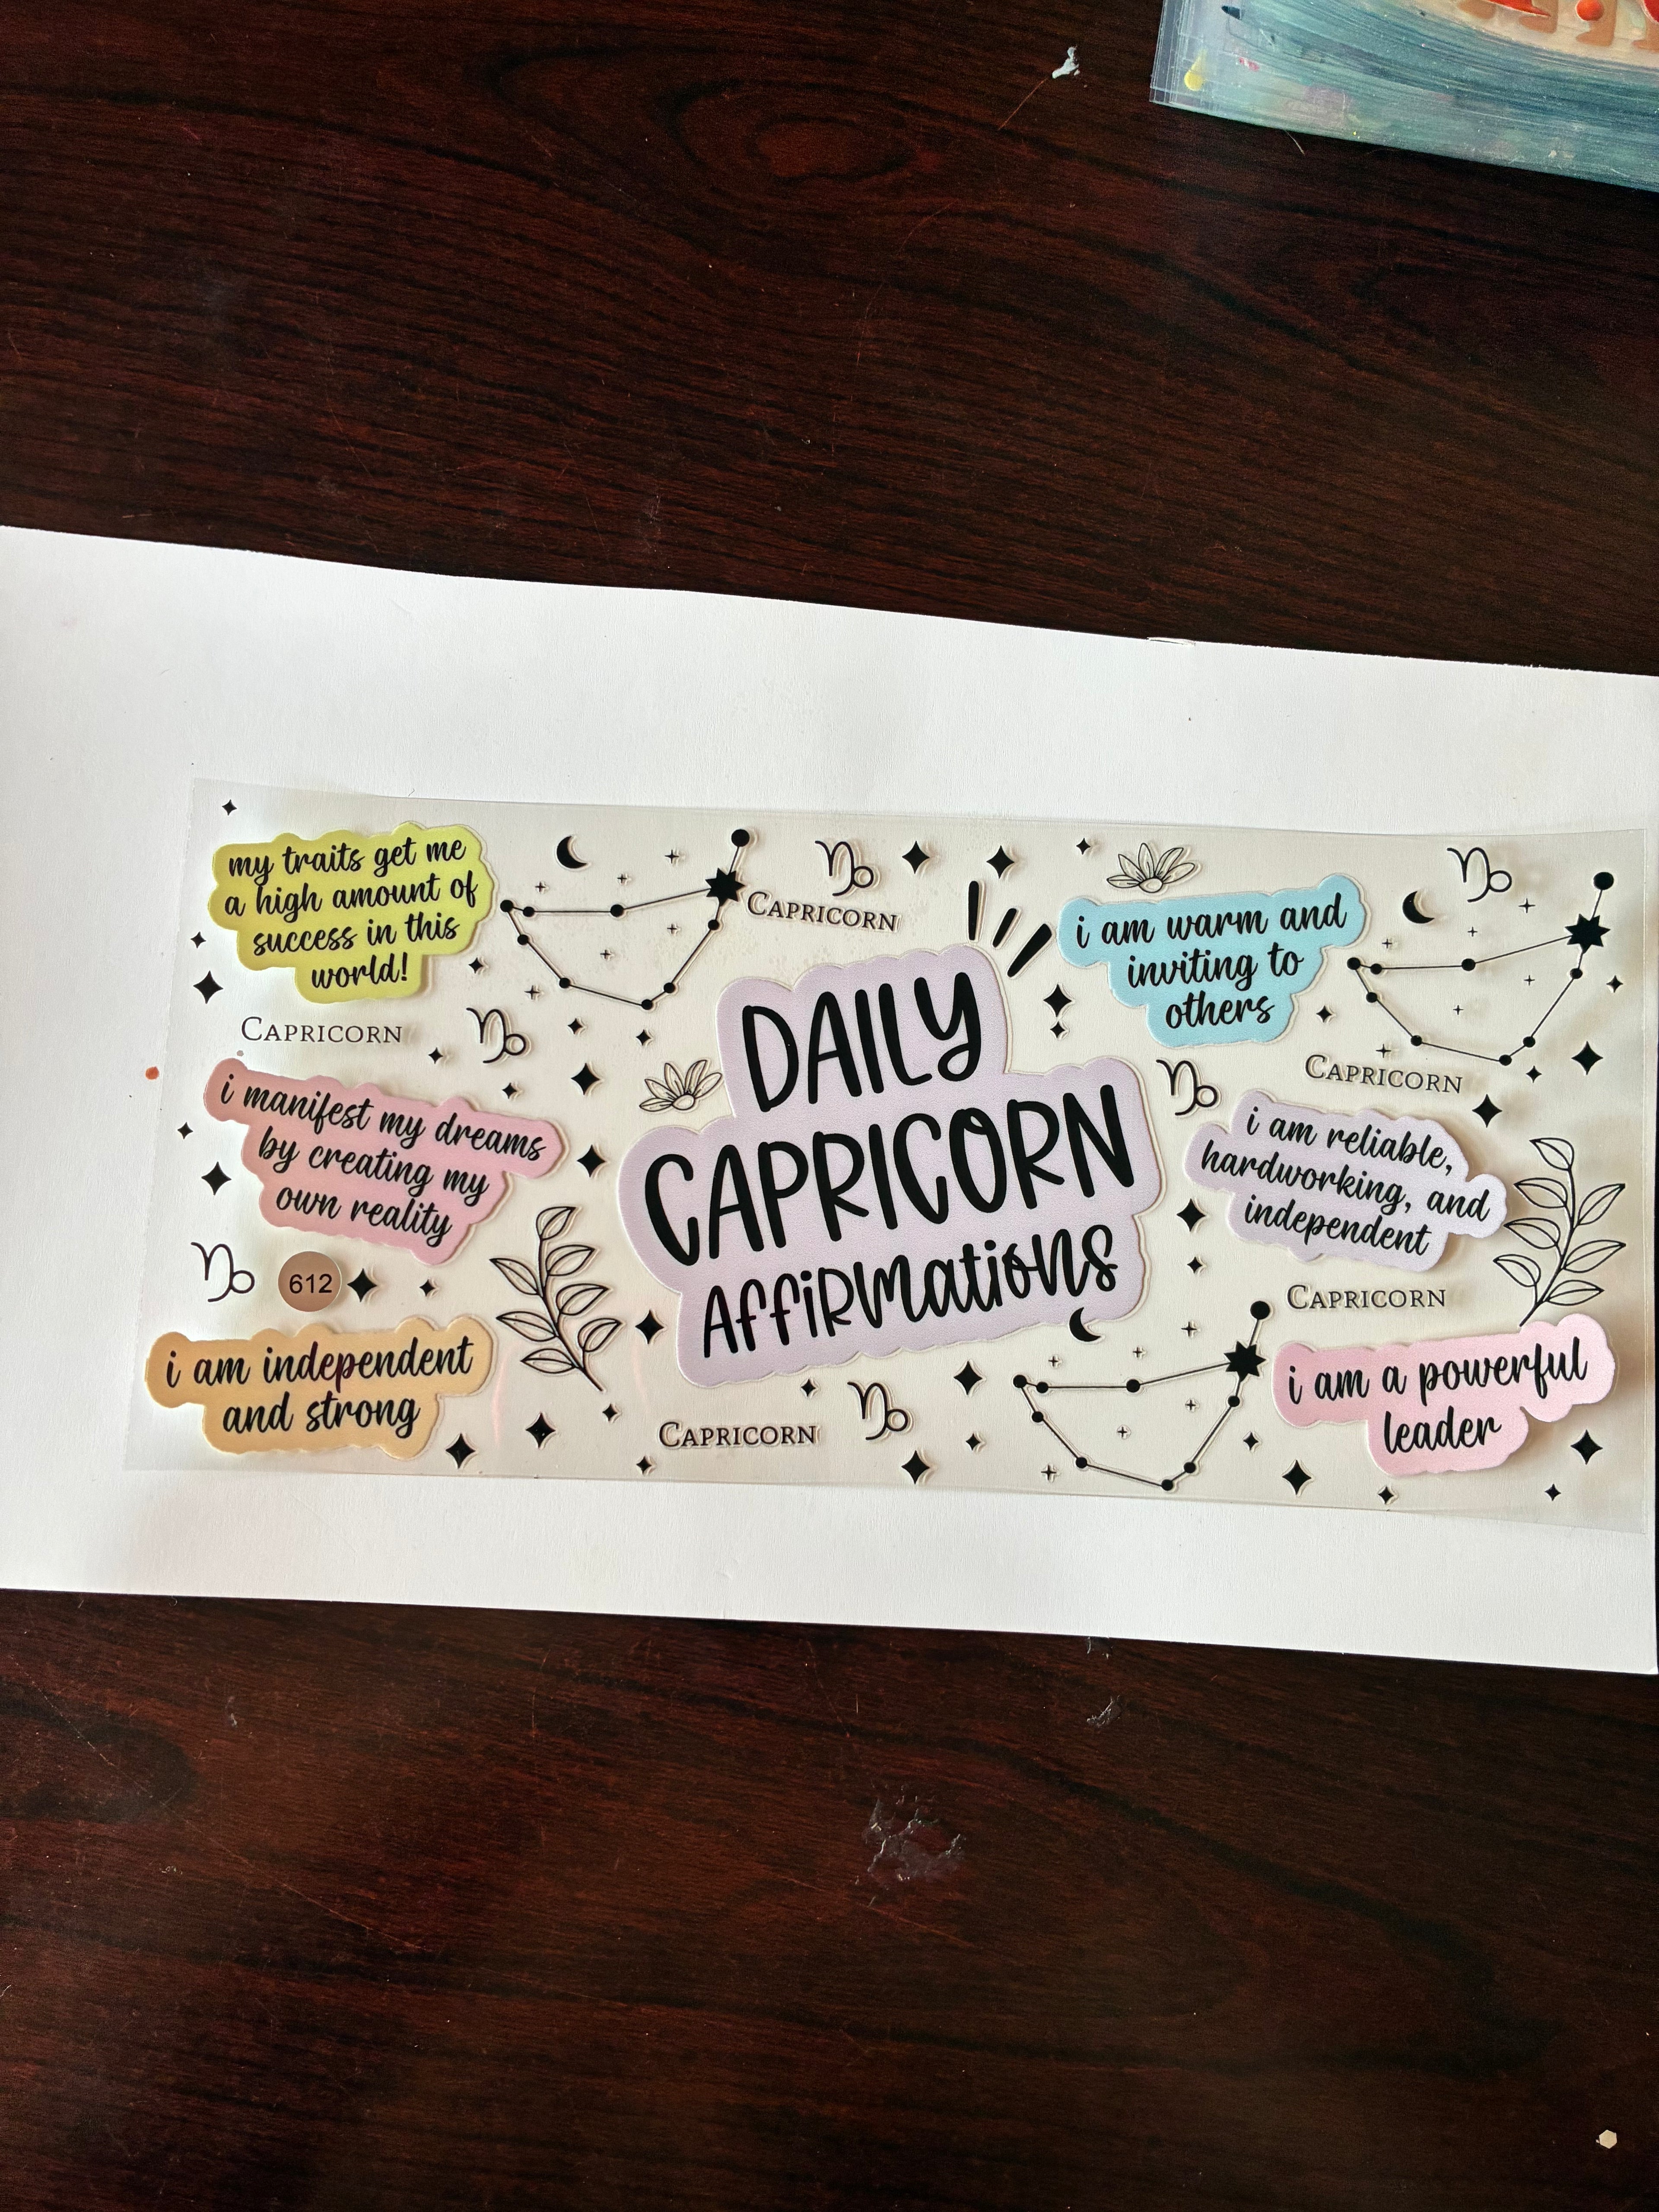 my traits get me
a high amount of
success in this
world!
CAPRICORN
CAPRICORN
i manifest my dreams
by creating my
own reality
612
i am independent
and strong
DAILY
CAPRICORN
AFFIRMATIONS
CAPRICORN
i am warm and
inviting to
others
CAPRICORN
i am reliable,
hardworking, and
independent
CAPRICORN
i am a powerful
leader